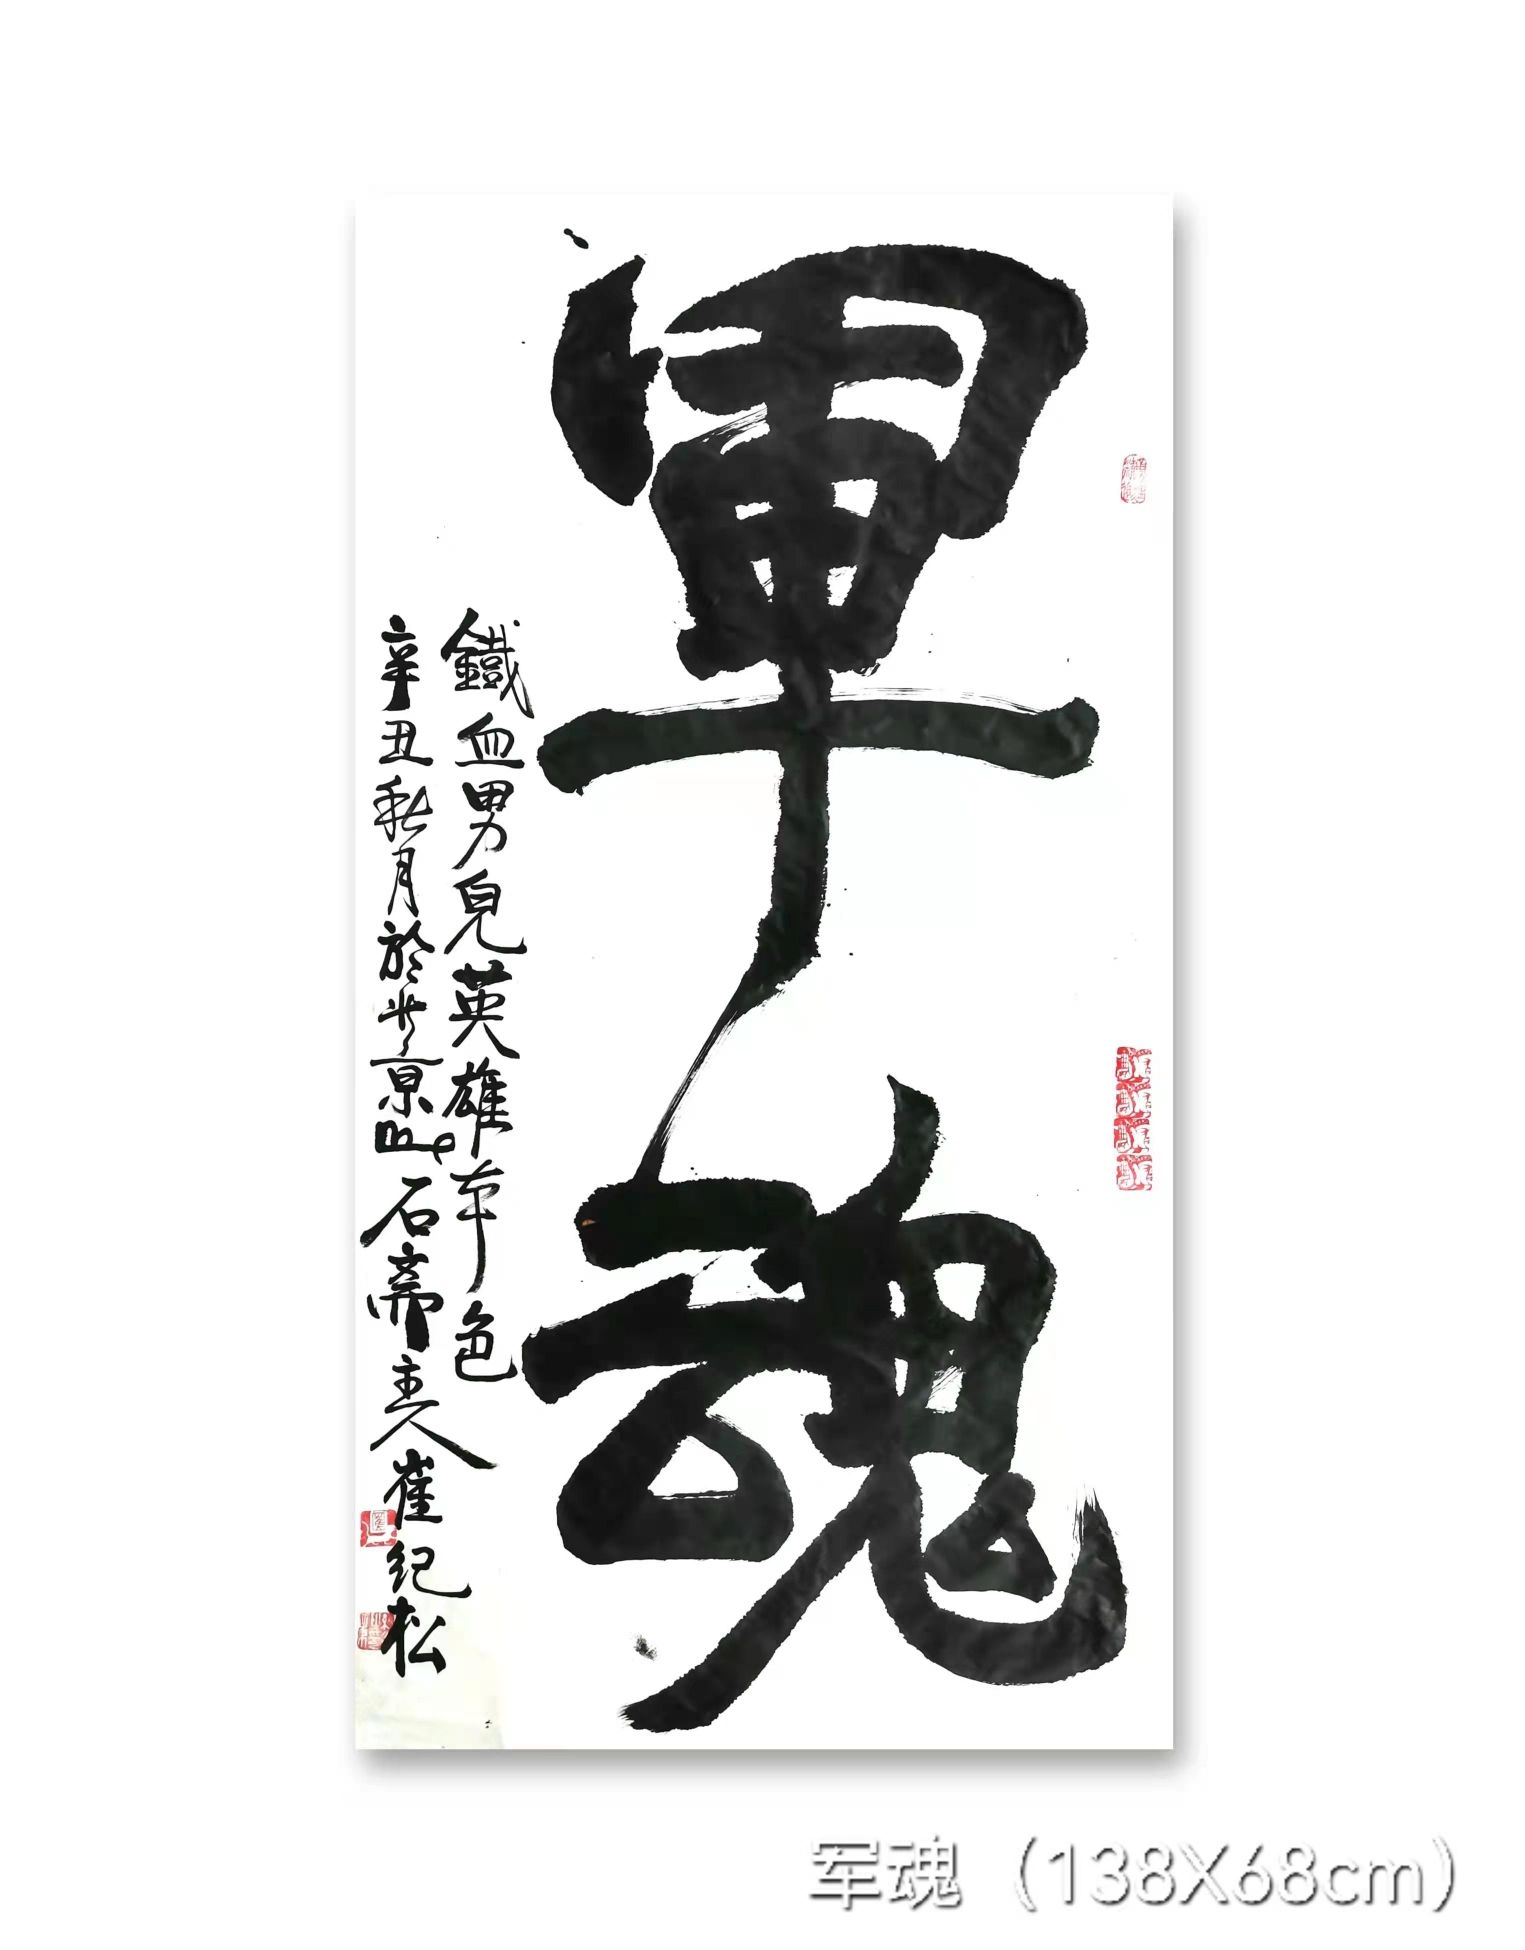 軍魂
鐵血男兒英雄本色
辛丑秋月於北京卧石齋主人崔纪松
军魂（138X68cm）